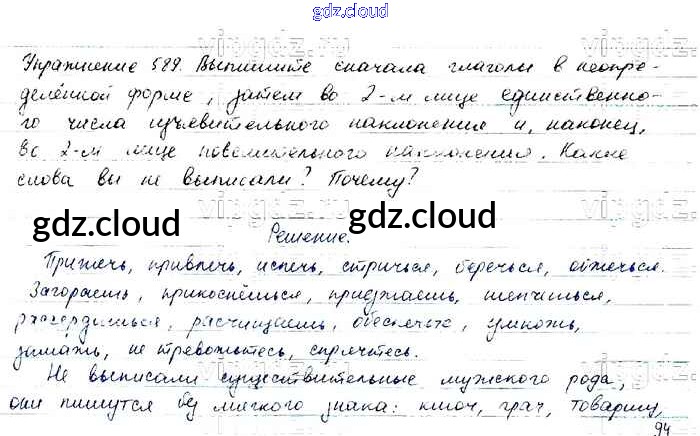 gdz.cloud
Упражнение 589. Выпишите сначала глаголы в неопре-
делённой форме, затем во 2-м лице единственно-
го числа изъявительного наклонения и, наконец,
во 2-м лице повелительного наклонения. Какие
слова вы не выписали? Почему?
gdz.cloud gdz.cloud
Решение.
Прижечь, привлечь, испечь, стричься, беречься, обжечься.
Загораешь, прикоснёшься, приезжаешь, шепчешься,
рассердишься, расчищаешь, обеспечьте, умножь,
замажь, не тревожьтесь, спрячьтесь.
Не выписали существительные мужского рода,
они пишутся без мягкого знака: ключ, грач, товарищ,
94